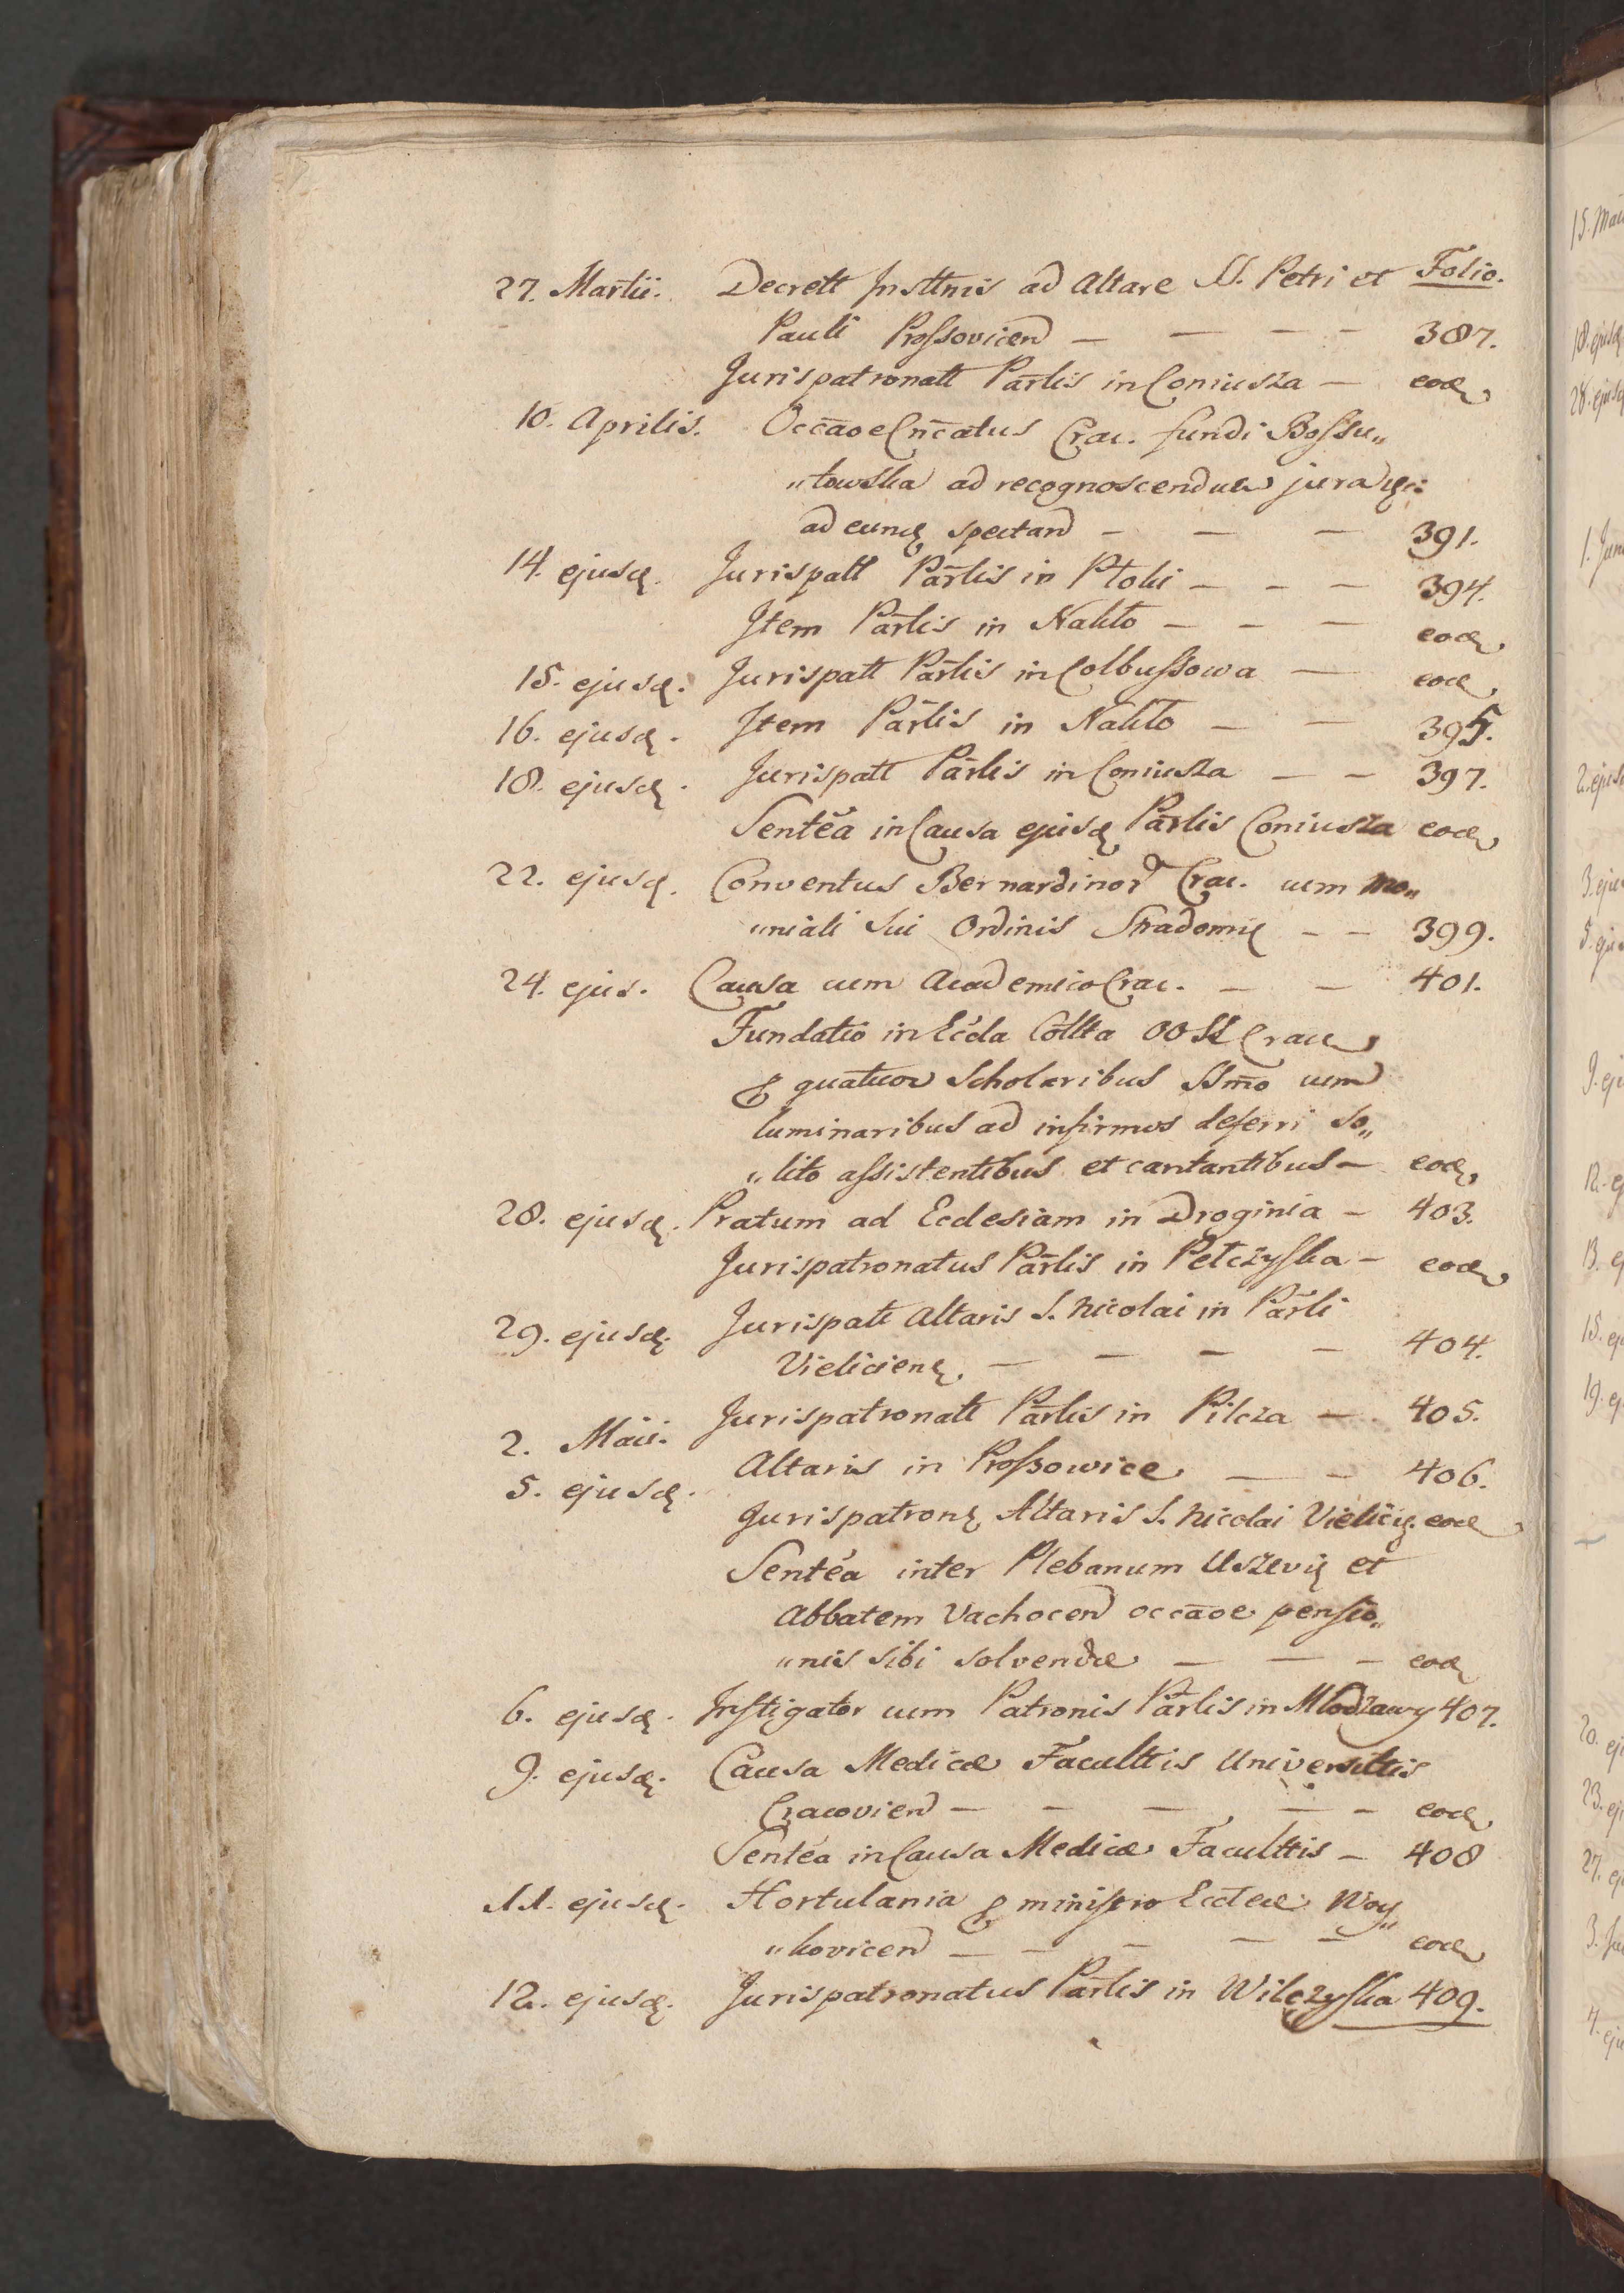 27. Martii. Decrett Insttnis ad Altare SS. Petri et Folio.
Pauli Proszovicen — — — — 387.
Jurispatronatt Parlis in Coniusza — eod
10. Aprilis. Occaoe Cncatus Crac. fundi Bossu„
„towska ad recognoscendum jura
ad eund spectand — — — 391.
14. ejusd. Jurispatt Parlis in Ptoki — — — 394.
Item Parlis in Nakło — — — eod
15. ejusd. Jurispatt Parlis in Colbuszowa — eod
16. ejusd. Item Parlis in Nakło — — 395.
18. ejusd. Jurispatt Parlis in Coniusza — — 397.
Sentea in Causa ejusd Parlis Coniusza eod
22. ejusd. Conventus Bernardinor Crac. cum Mo„
„niali Sui Ordinis Stradomie — — 399.
24. ejus. Causa cum Academico Crac. — — 401.
Fundatio in Eccla Collta OO SS Crac
p quatuor Scholaribus SSmo cum
luminaribus ad infirmos deferri so„
„lito assistentibus et cantantibus — eod
28. ejusd. Pratum ad Ecclesiam in Droginia — 403.
Jurispatronatus Parlis in Pełczyska — eod
29. ejusd. Jurispatt Altaris S. Nicolai in Parli
Vielicien. — — — — 404.
2. Maii. Jurispatronatt Parlis in Pilcza — 405.
5. ejusd. Altaris in Proszowice — — 406.
Jurispatron Altaris S. Nicolai Vielicien. eod
Sentea inter Plebanum Uszevien et
Abbatem Vachocen occaoe pensio„
„nis sibi solvendae — — — eod
6. ejusd. Instigator cum Patronis Parlis in Młodzawy 407.
9. ejusd. Causa Medicae Facultttis Universittis
Cracovien — — — — — eod
Sentea in Causa Medicae Facultttis — 408
11. ejusd. Hortulania p ministro Eccleae Woy„
„kovicen — — — — — eod
12. ejusd. Jurispatronatus Parlis in Wilczyska 409.